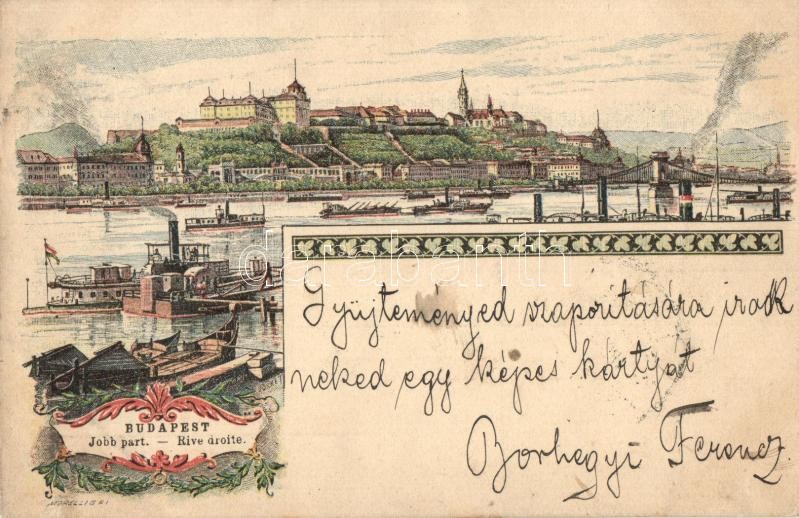 darabanth
Gyüjteményed szaporitására irok
neked egy képes kártyát
Borhegyi Ferencz
BUDAPEST
Jobb part. — Rive droite.